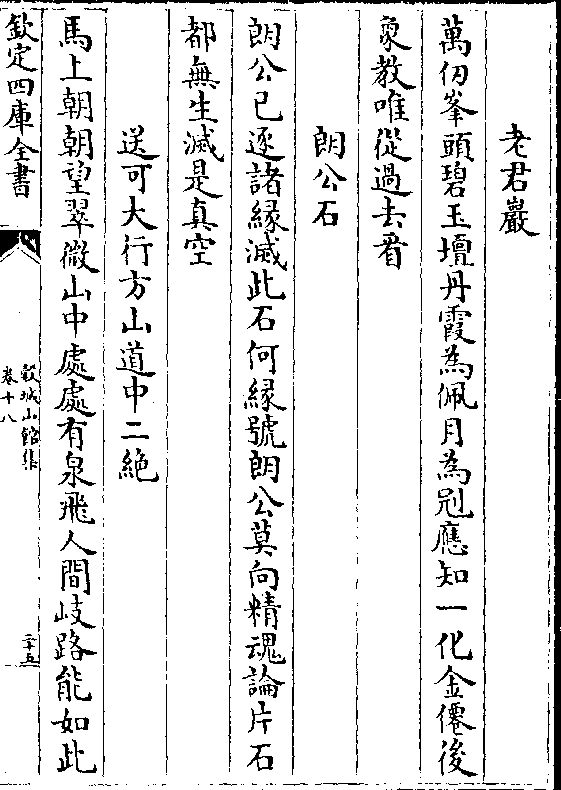 老君巖
萬仞峯頭碧玉壇丹霞為佩月為冠應知一化金僊後
象教唯從過去看
朗公石
朗公已逐諸縁滅此石何縁號朗公莫向精魂論片石
都無生滅是真空
送可大行方山道中二絶
馬上朝朝望翠微山中處處有泉飛人間岐路能如此
欽定四庫全書
榖城山館集
卷十八
二十五